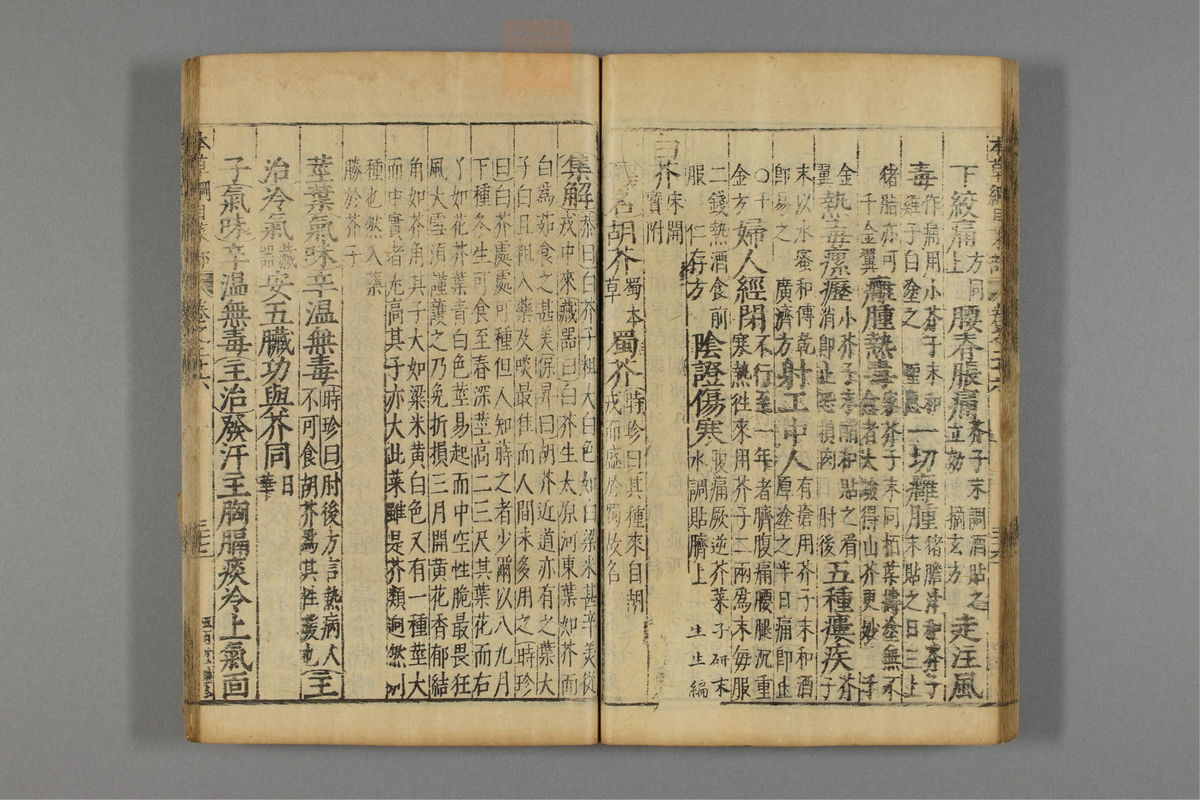 下絞痛上方同腰脊脹痛芥子末調酒貼之立効摘玄方走注風
毒作痛用小芥子末和雞子白塗之聖惠一切癰腫猪膽汁和芥子末貼之日三上
猪脂亦可千金翼癰腫熱毒家芥子末同柏葉擣塗無不愈者大驗得山芥更妙千
金翼熱毒瘰癧小芥子末醋和貼之看消即止恐損肉肘後五種瘻疾芥子
末以水蜜和傅乾即易之廣濟方射工中人有瘡用芥子末和酒厚塗之半日痛即止
千金方婦人經閉不行至一年者臍腹痛腰腿沉重寒熱往來用芥子二兩爲末每服
二錢熱酒食前服仁存方陰證傷寒腹痛厥逆芥菜子研末水調貼臍上生生編
白芥宋開寶附
釋名胡芥蜀本草蜀芥時珍曰其種來自胡戎而盛於蜀故名
集解恭曰白芥子粗大白色如白粱米甚辛美從戎中來藏器曰白芥生太原河東葉如芥而
白爲茹食之甚美保昇曰胡芥近道亦有之葉大
子白且粗入藥及啖最佳而人間未多用之時珍
曰白芥處處可種但人知蒔之者少爾以八九月
下種冬生可食至春深莖高二三尺其葉花而有
丫如花芥葉青白色莖易起而中空性脆最畏狂
風大雪須謹護之乃免折損三月開黄花香郁結
角如芥角其子大如粱米黄白色又有一種莖大
而中實者尤高其子亦大此菜雖是芥類迥然別
種也然入藥
勝於芥子
莖葉氣味辛溫無毒時珍曰肘後方言熱病人不可食胡芥爲其性暖也主
治冷氣藏器安五臟功與芥同日華
子氣味辛溫無毒主治發汗主胸膈痰冷上氣面